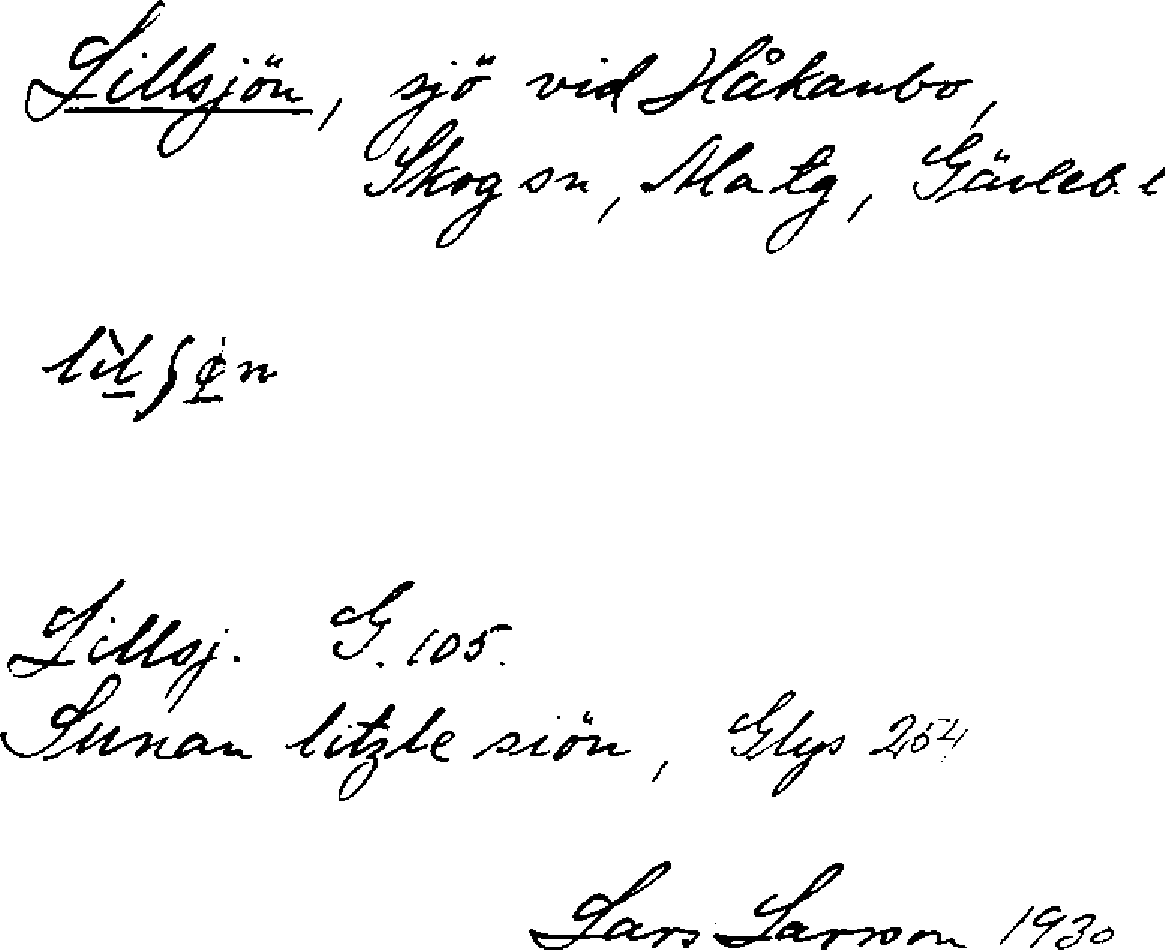 Lillsjön, sjö vid Håkanbo,
Skog sn, Ala tg, Gävleb. l
lìlʃø̀n
Lillsj. G. 105.
Sunan litzle siön, Glys 254
Lars Larsson 1930